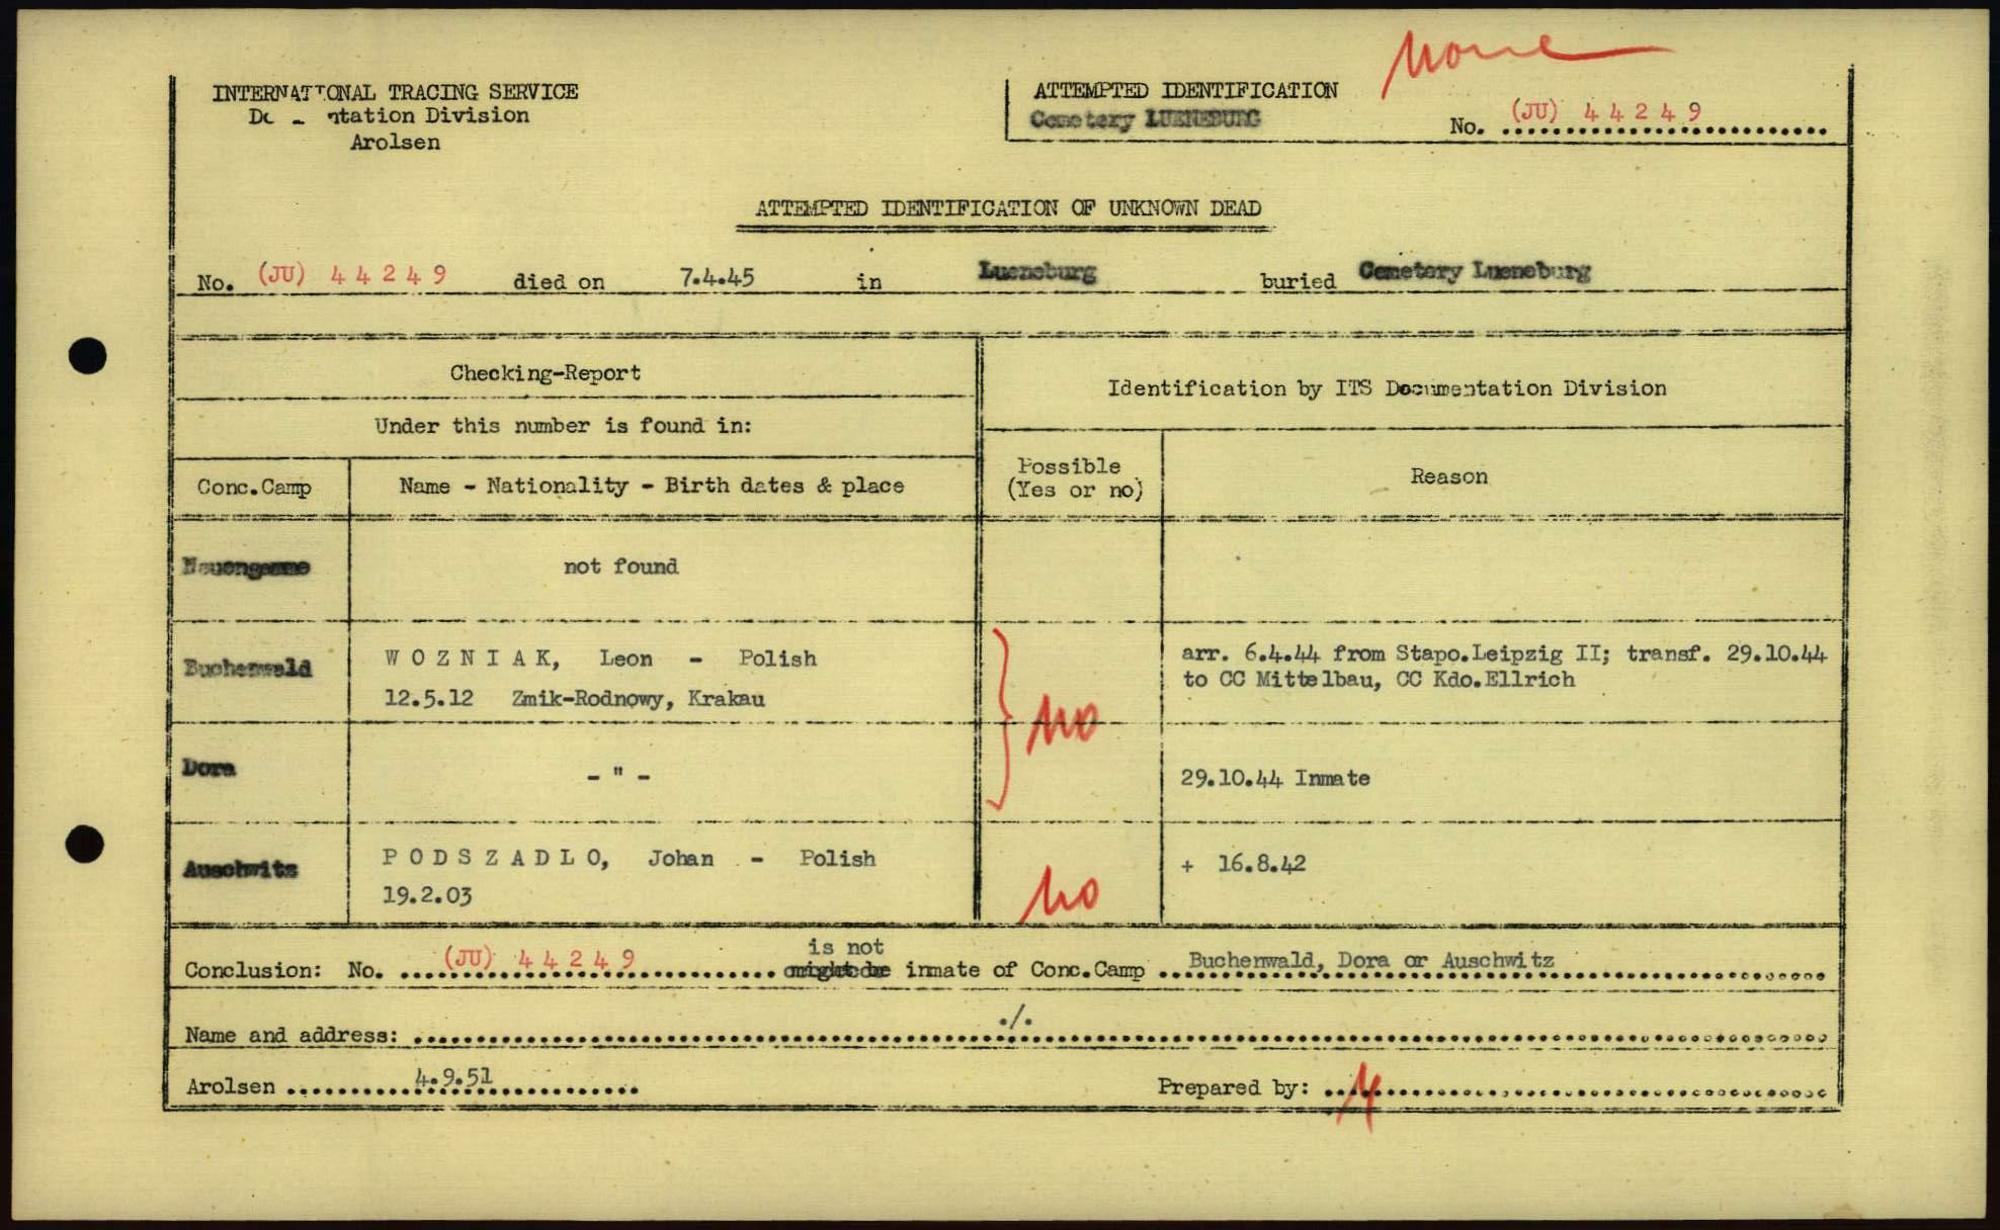 none
INTERNATIONAL TRACING SERVICE
Documentation Division
Arolsen
ATTEMPTED IDENTIFICATION
Cemetery LUENEBURG
No. (JU) 44249
ATTEMPTED IDENTIFICATION OF UNKNOWN DEAD
No. (JU) 44249 died on 7.4.45 in Lueneburg buried Cemetery Lueneburg
Checking-Report
Under this number is found in:
Identification by ITS Documentation Division
Conc.Camp
Name - Nationality - Birth dates & place
Possible
(Yes or no)
Reason
Neuengamme
not found
Buchenwald
WOZNIAK, Leon - Polish
12.5.12 Zmik-Rodnowy, Krakau
no
arr. 6.4.44 from Stapo.Leipzig II; transf. 29.10.44
to CC Mittelbau, CC Kdo.Ellrich
Dora
- " -
29.10.44 Inmate
Auschwitz
PODSZADLO, Johan - Polish
19.2.03
no
+ 16.8.42
is not
Conclusion: No. (JU) 44249 inmate of Conc.Camp Buchenwald, Dora or Auschwitz
Name and address: ./.
Arolsen 4.9.51
Prepared by: